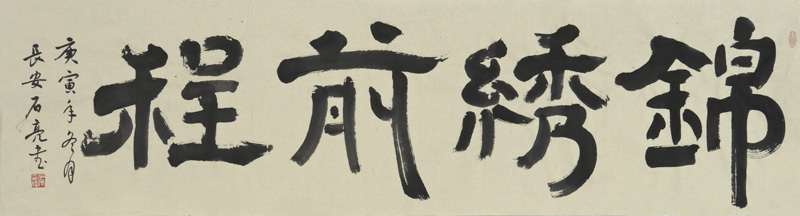 錦綉前程
庚寅年冬月
長安石亮書